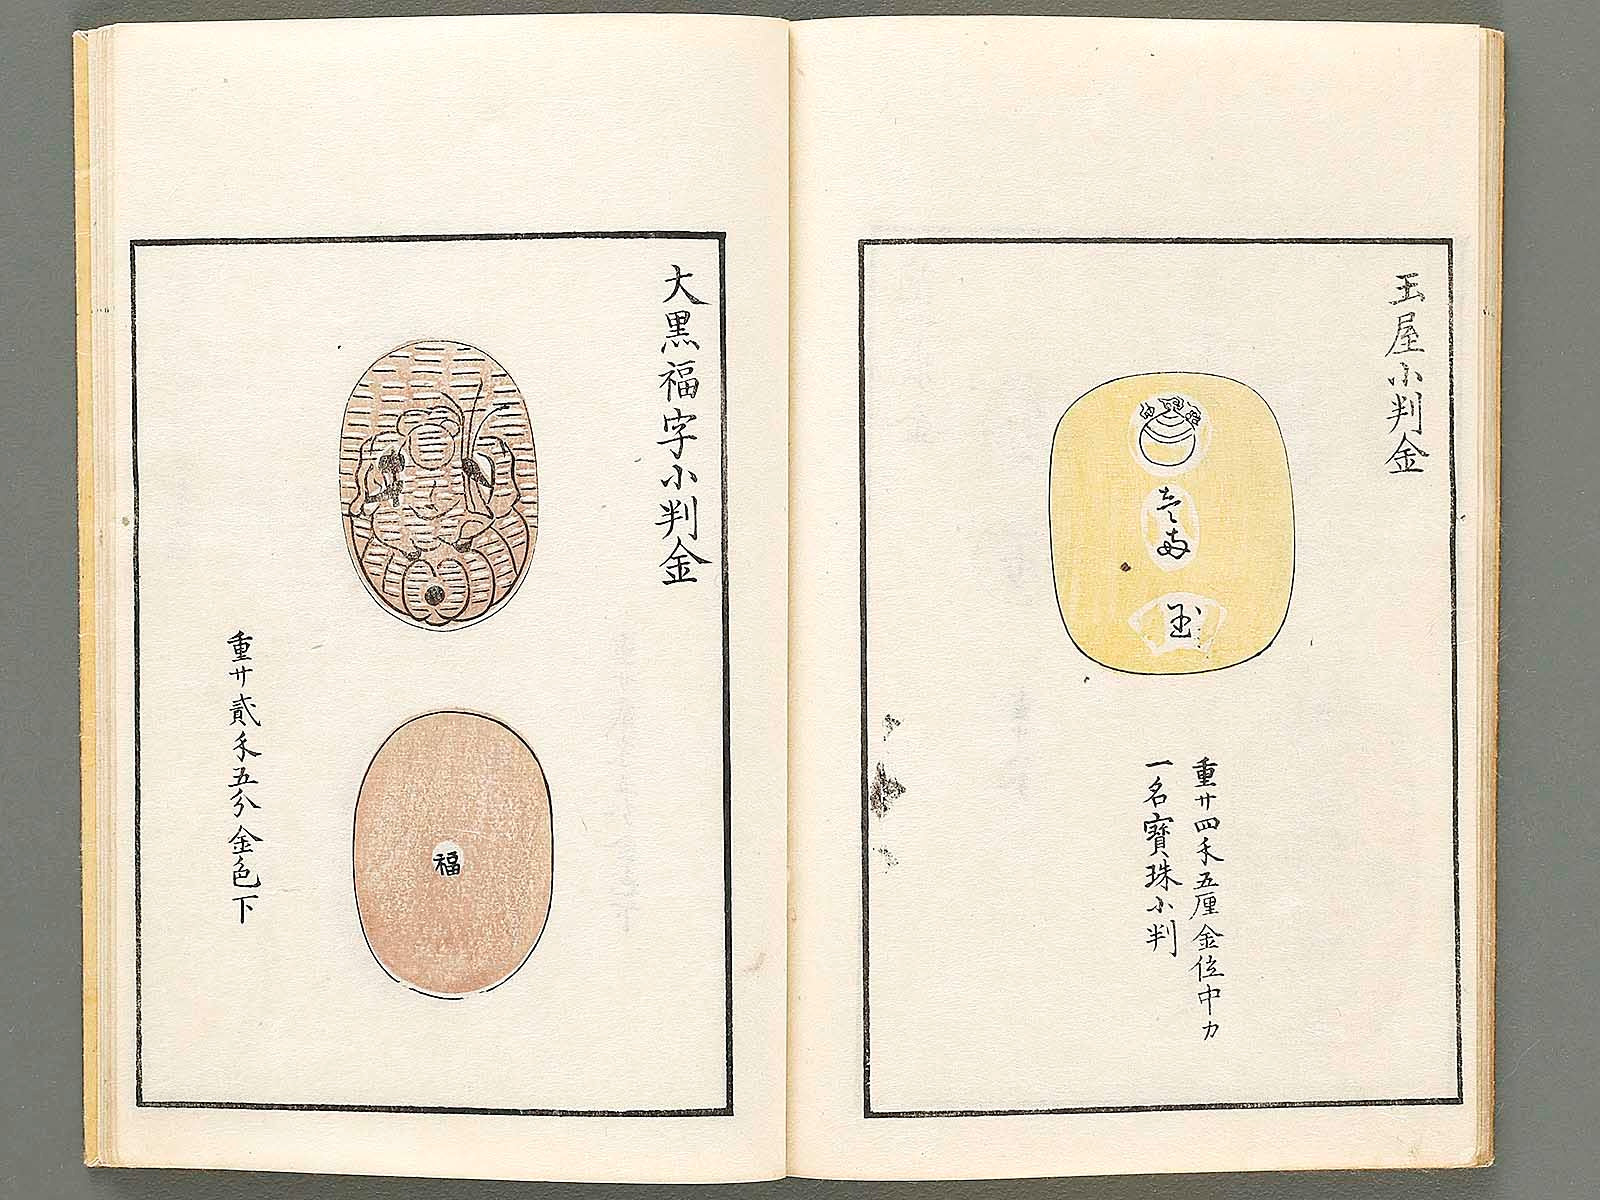 玉屋小判金
壱两
玉
重廿四匁五厘金位中カ
一名寶珠小判
大黒福字小判金
福
重廿貳匁五分金色下